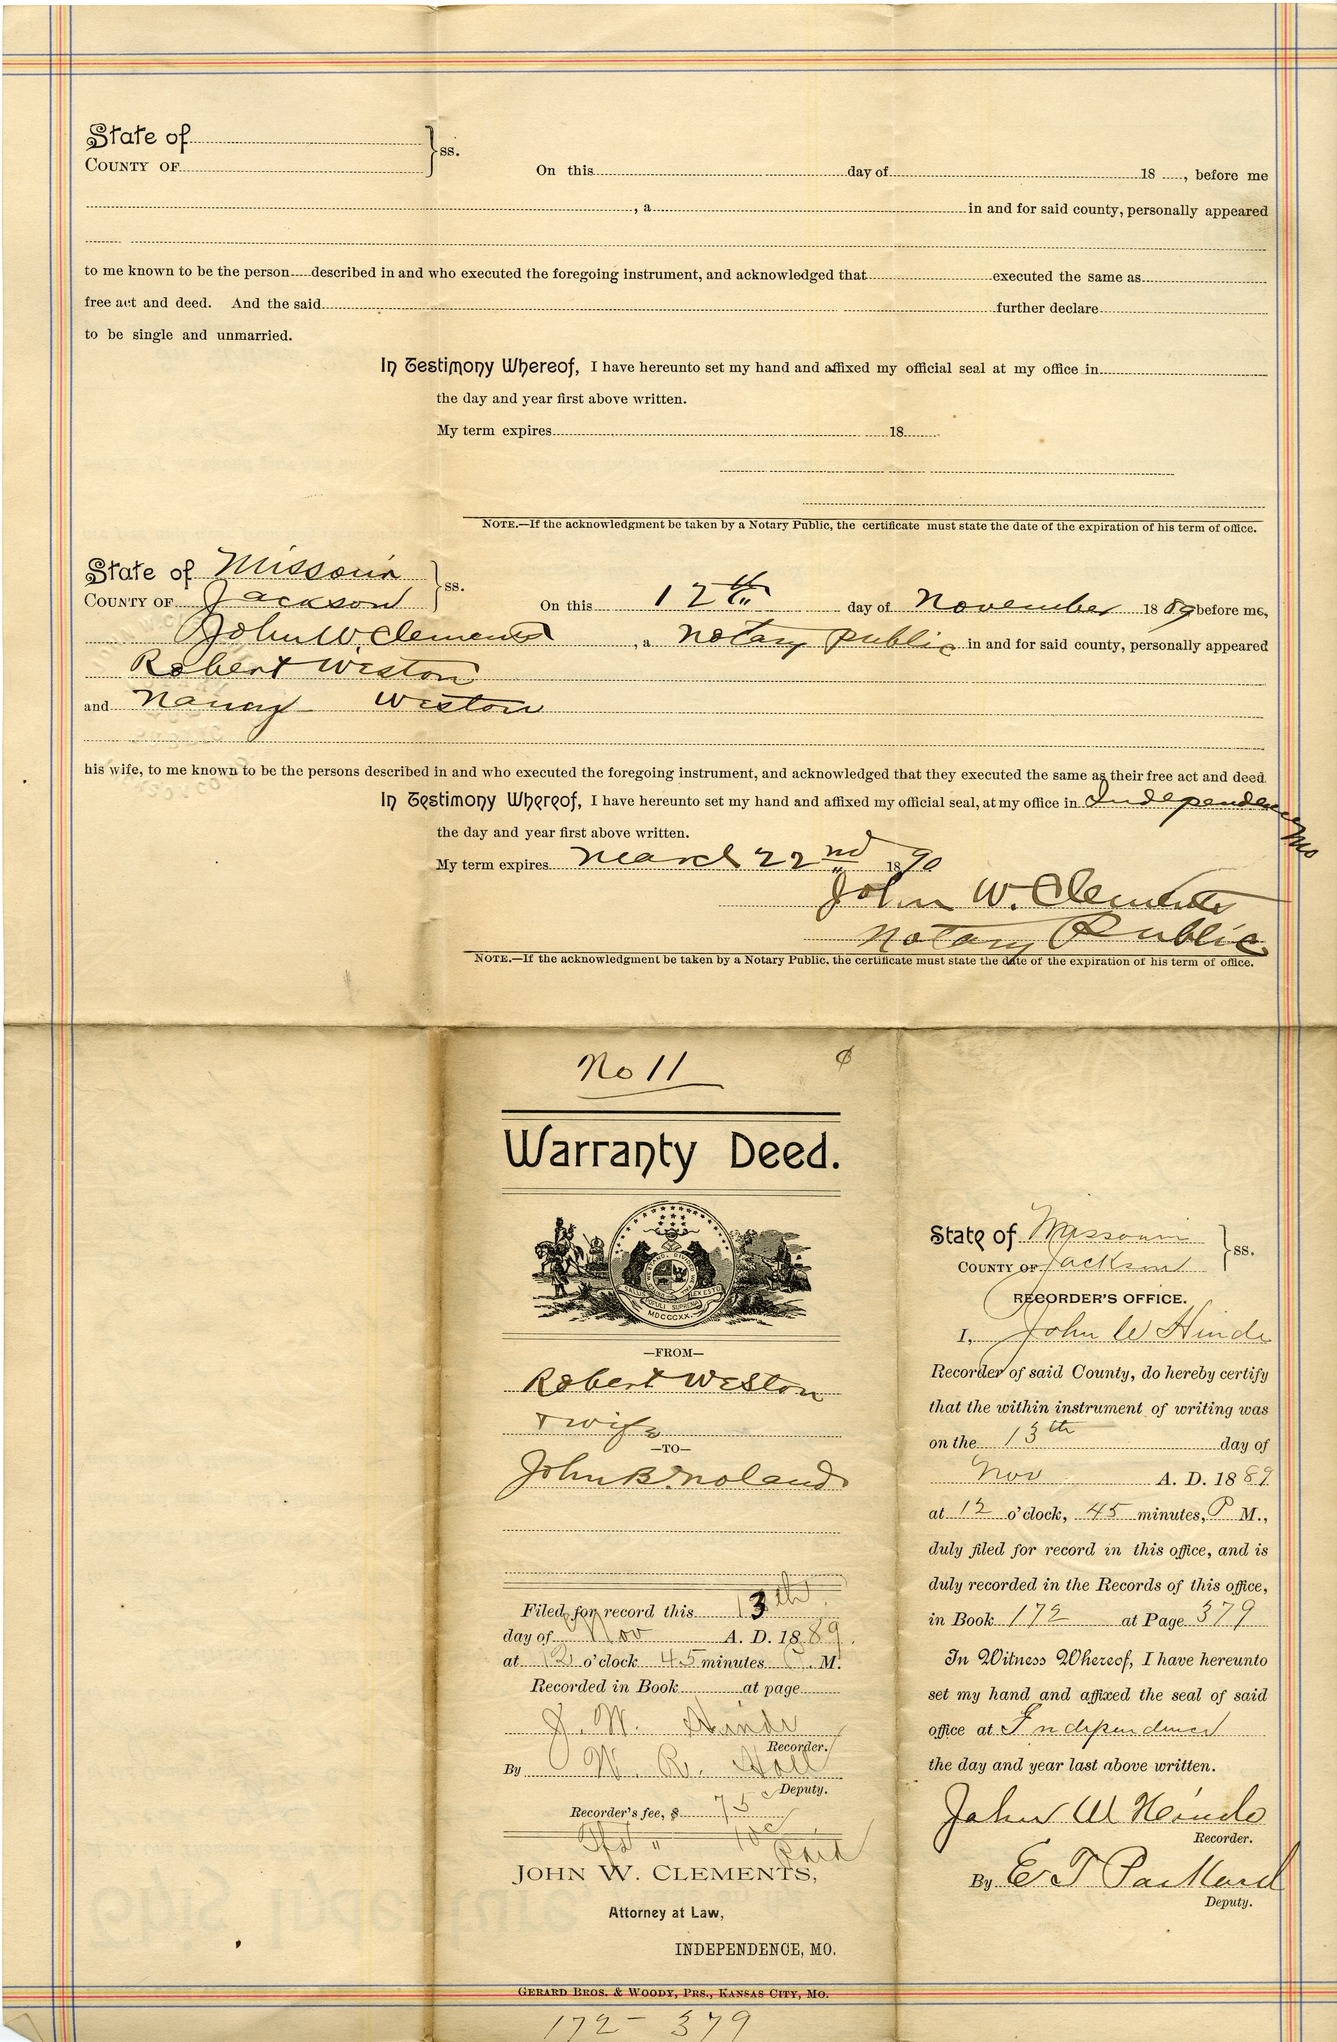 State of
COUNTY OF
ss.
On this day of 18 , before me
, a in and for said county, personally appeared
to me known to be the person described in and who executed the foregoing instrument, and acknowledged that executed the same as
free act and deed. And the said further declare
to be single and unmarried.
In Testimony Whereof, I have hereunto set my hand and affixed my official seal at my office in
the day and year first above written.
My term expires 18
NOTE.—If the acknowledgment be taken by a Notary Public, the certificate must state the date of the expiration of his term of office.
State of Missouri
COUNTY OF Jackson
ss.
On this 12th day of November 1889 before me,
John W. Clements, a notary public in and for said county, personally appeared
Robert Weston
and Nancy Weston
his wife, to me known to be the persons described in and who executed the foregoing instrument, and acknowledged that they executed the same as their free act and deed.
In Testimony Whereof, I have hereunto set my hand and affixed my official seal, at my office in Independence Mo
the day and year first above written.
My term expires March 22nd 1890
John W. Clements
Notary Public
NOTE.—If the acknowledgment be taken by a Notary Public, the certificate must state the date of the expiration of his term of office.
No 11
Warranty Deed.
—FROM—
Robert Weston
& wife
—TO—
John B. Noland
Filed for record this 13th
day of Nov A. D. 1889.
at 12 o'clock 45 minutes P. M.
Recorded in Book at page
J. W. Hinde
Recorder.
By W. R. Hall
Deputy.
Recorder's fee, $ 75c
" 10c
Paid
JOHN W. CLEMENTS,
Attorney at Law,
INDEPENDENCE, MO.
GERARD BROS. & WOODY, PRS., KANSAS CITY, MO.
172 - 379
State of Missouri
COUNTY OF Jackson
ss.
RECORDER'S OFFICE.
I, John W Hinde
Recorder of said County, do hereby certify
that the within instrument of writing was
on the 13th day of
Nov A. D. 1889
at 12 o'clock, 45 minutes, P M.,
duly filed for record in this office, and is
duly recorded in the Records of this office,
in Book 172 at Page 379
In Witness Whereof, I have hereunto
set my hand and affixed the seal of said
office at Independence
the day and year last above written.
John W Hinde
Recorder.
By E T Packard
Deputy.